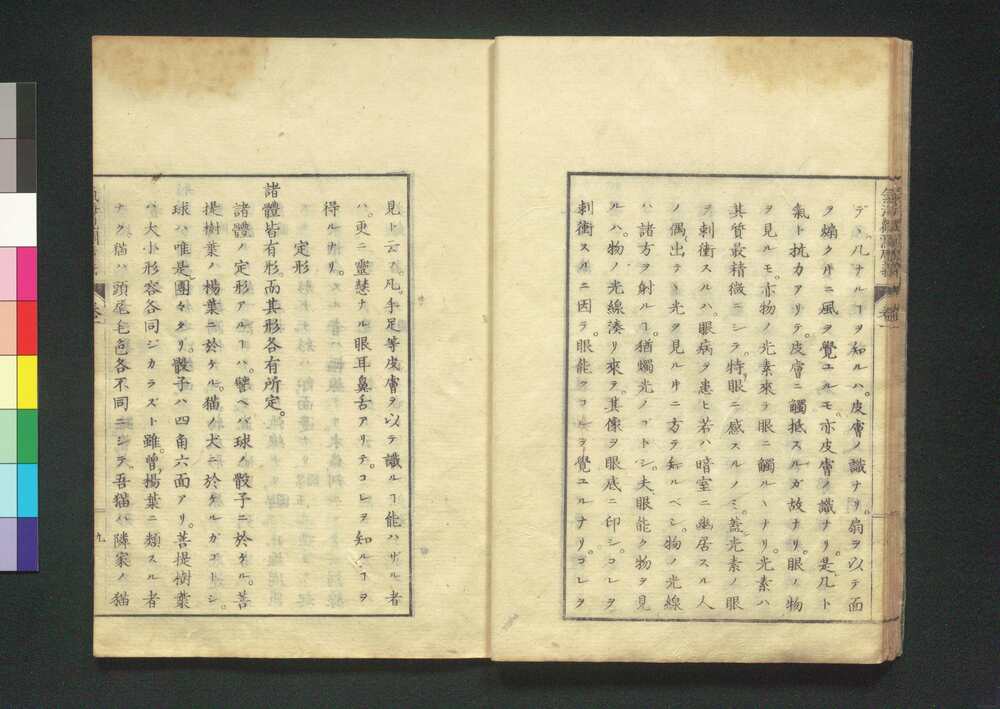 デ、凡ナルヿヲ知ルハ。皮膚ノ識ナリ。扇ヲ以テ面
ヲ煽クᅥニ風ヲ覺ユルモ。亦皮膚ノ識ナリ。是几ト
氣ト抗カアリテ。皮膚ニ觸抵スルガ故ナリ。眼ノ物
ヲ見ルモ。亦物ノ光素來テ眼ニ觸ルヽナリ。光素ハ
其質最精微ニシテ。特眼ニ感スルノミ。蓋光素ノ眼
ヲ刺衝スルハ。眼病ヲ患ヒ若ハ暗室ニ幽居スル人
ノ偶出テヽ光ヲ見ルᅥニ方テ知ルベシ。物ノ光線
ハ諸方ヲ射ルヿ。猶燭光ノゴトシ。夫眼能ク物ヲ見
ルハ。物ノ光線湊リ來テ。其像ヲ眼底ニ印シ。コレヲ
刺衝スルニ因テ。眼能クコレヲ覺ユルナリ。コレヲ
見ト云フ。凡手足等皮膚ヲ以テ識ルヿ能ハザル者
ハ。更ニ靈慧ナル眼耳鼻舌アリテ。コレヲ知ルヿヲ
得ルナリ。
定形
諸體皆有形。而其形各有所定。
諸體ノ定形アルヿハ。譬ヘバ球ノ骰子ニ於ケル。菩
提樹葉ノ楊葉ニ於ケル。猫ノ犬ニ於ケルガゴトシ。
球ハ唯是團々タリ。骰子ハ四角六面アリ。菩提樹葉
ハ大小形容各同ジカラズト雖。曾楊葉ニ類スル者
ナク。猫ハ頭尾毛色各不同ニシテ。吾猫ハ隣家ノ猫
九